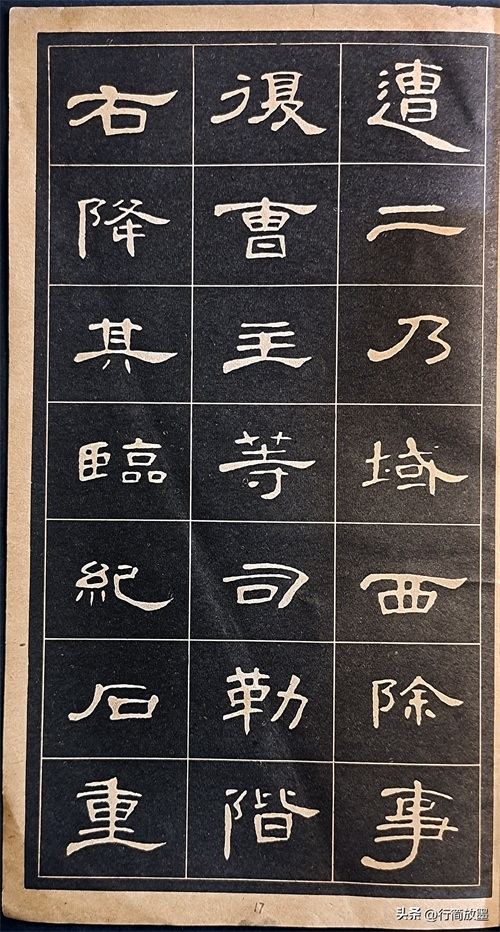 遭二乃域西除事
復曹主等司勒階
右降其臨紀石重
17
头条 @行简放墨